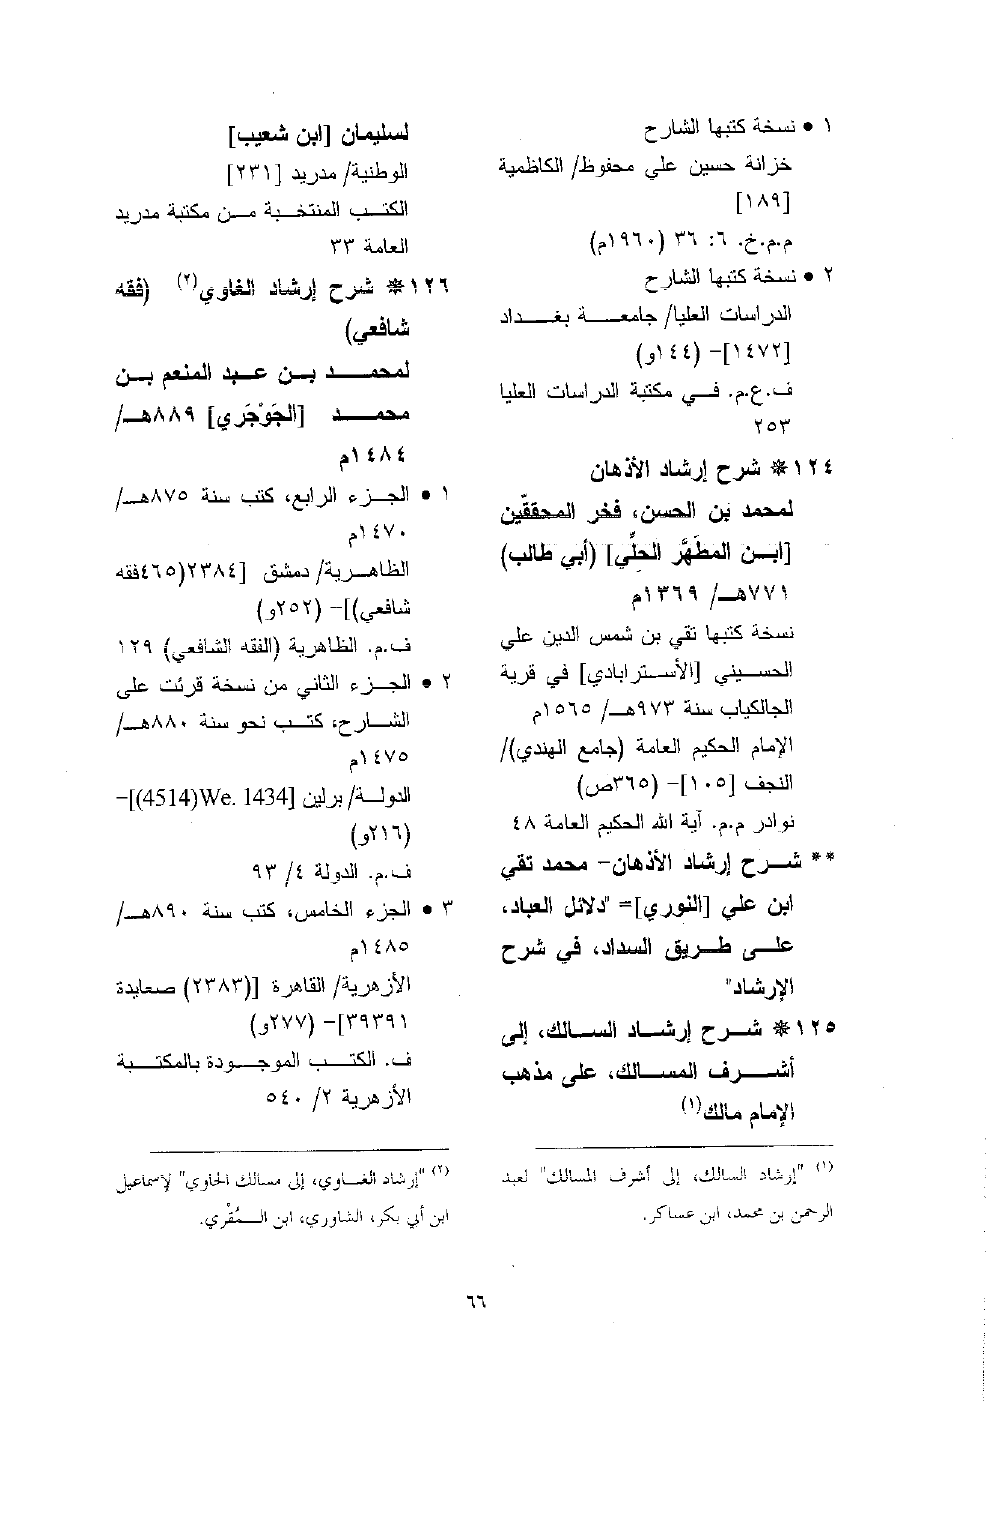 ١ • نسخة كتبها الشارح
خزانة حسين علي محفوظ/ الكاظمية
[١٨٩]
م.م.خ. ٦: ٣٦ (١٩٦٠م)
٢ • نسخة كتبها الشارح
الدراسات العليا/ جامعة بغداد
[١٤٧٢]- (١٤٤و)
ف.ع.م. في مكتبة الدراسات العليا
٢٥٣
١٢٤* شرح إرشاد الأذهان
لمحمد بن الحسن، فخر المحققين
[ابن المطهَّر الحلِّي] (أبي طالب)
٧٧١هـ/ ١٣٦٩م
نسخة كتبها تقي بن شمس الدين علي
الحسيني [الأسترابادي] في قرية
الجالكياب سنة ٩٧٣هـ/ ١٥٦٥م
الإمام الحكيم العامة (جامع الهندي)/
النجف [١٠٥]- (٣٦٥ص)
نوادر م.م. آية الله الحكيم العامة ٤٨
** شرح إرشاد الأذهان- محمد تقي
ابن علي [النوري]= "دلائل العباد،
على طريق السداد، في شرح
الإرشاد"
١٢٥* شرح إرشاد السالك، إلى
أشرف المسالك، على مذهب
الإمام مالك(١)
(١) "إرشاد السالك، إلى أشرف المسالك" لعبد
الرحمن بن محمد، ابن عساكر.
لسليمان [ابن شعيب]
الوطنية/ مدريد [٢٣١]
الكتب المنتخبة من مكتبة مدريد
العامة ٣٣
١٢٦* شرح إرشاد الغاوي(٢) (فقه
شافعي)
لمحمد بن عبد المنعم بن
محمد [الجَوْجَري] ٨٨٩هـ/
١٤٨٤م
١ • الجزء الرابع، كتب سنة ٨٧٥هـ/
١٤٧٠م
الظاهرية/ دمشق [٢٣٨٤(٤٦٥فقه
شافعي)]- (٢٥٢و)
ف.م. الظاهرية (الفقه الشافعي) ١٢٩
٢ • الجزء الثاني من نسخة قرئت على
الشارح، كتب نحو سنة ٨٨٠هـ/
١٤٧٥م
الدولة/ برلين [4514)We. 1434)]-
(٢١٦و)
ف.م. الدولة ٤/ ٩٣
٣ • الجزء الخامس، كتب سنة ٨٩٠هـ/
١٤٨٥م
الأزهرية/ القاهرة [(٢٣٨٣) صعايدة
٣٩٣٩١]- (٢٧٧و)
ف. الكتب الموجودة بالمكتبة
الأزهرية ٢/ ٥٤٠
(٢) "إرشاد الغاوي، إلى مسالك الحاوي" لإسماعيل
ابن أبي بكر، الشاوري، ابن المُقْري.
٦٦